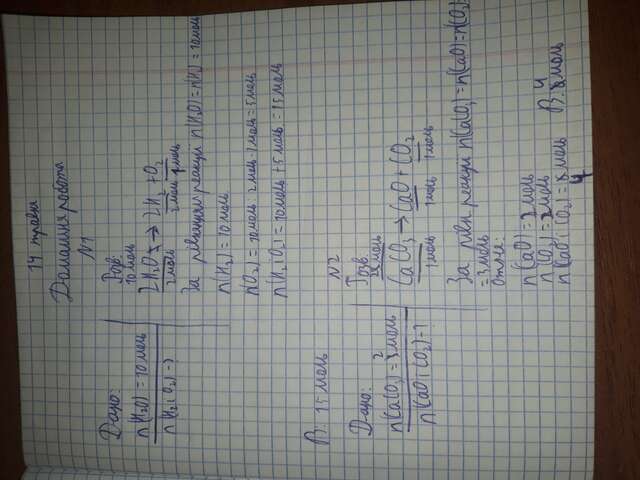 14 травня
Домашня робота
№1
Дано:
n(H₂O) = 10 моль
n(H₂; O₂) - ?
Розв:
10 моль
2H₂O → 2H₂ + O₂
2 моль 2 моль 1 моль
За рівнянням реакції n(H₂O) = n(H₂) = 10 моль
n(H₂) = 10 моль
n(O₂) = 10 моль : 2 моль · 1 моль = 5 моль
n(H₂; O₂) = 10 моль + 5 моль = 15 моль
В. 15 моль
№2
Дано:
n(CaCO₃) = 2 моль
n(CaO; CO₂) - ?
Розв.
моль
CaCO₃ → CaO + CO₂
1 моль 1 моль 1 моль
За рівн реакції n(CaCO₃) = n(CaO) = n(CO₂)
= 3 моль
Отже:
n(CaO) = 2 моль
n(CO₂) = 2 моль
n(CaO; CO₂) = 4 моль
В. 4 моль